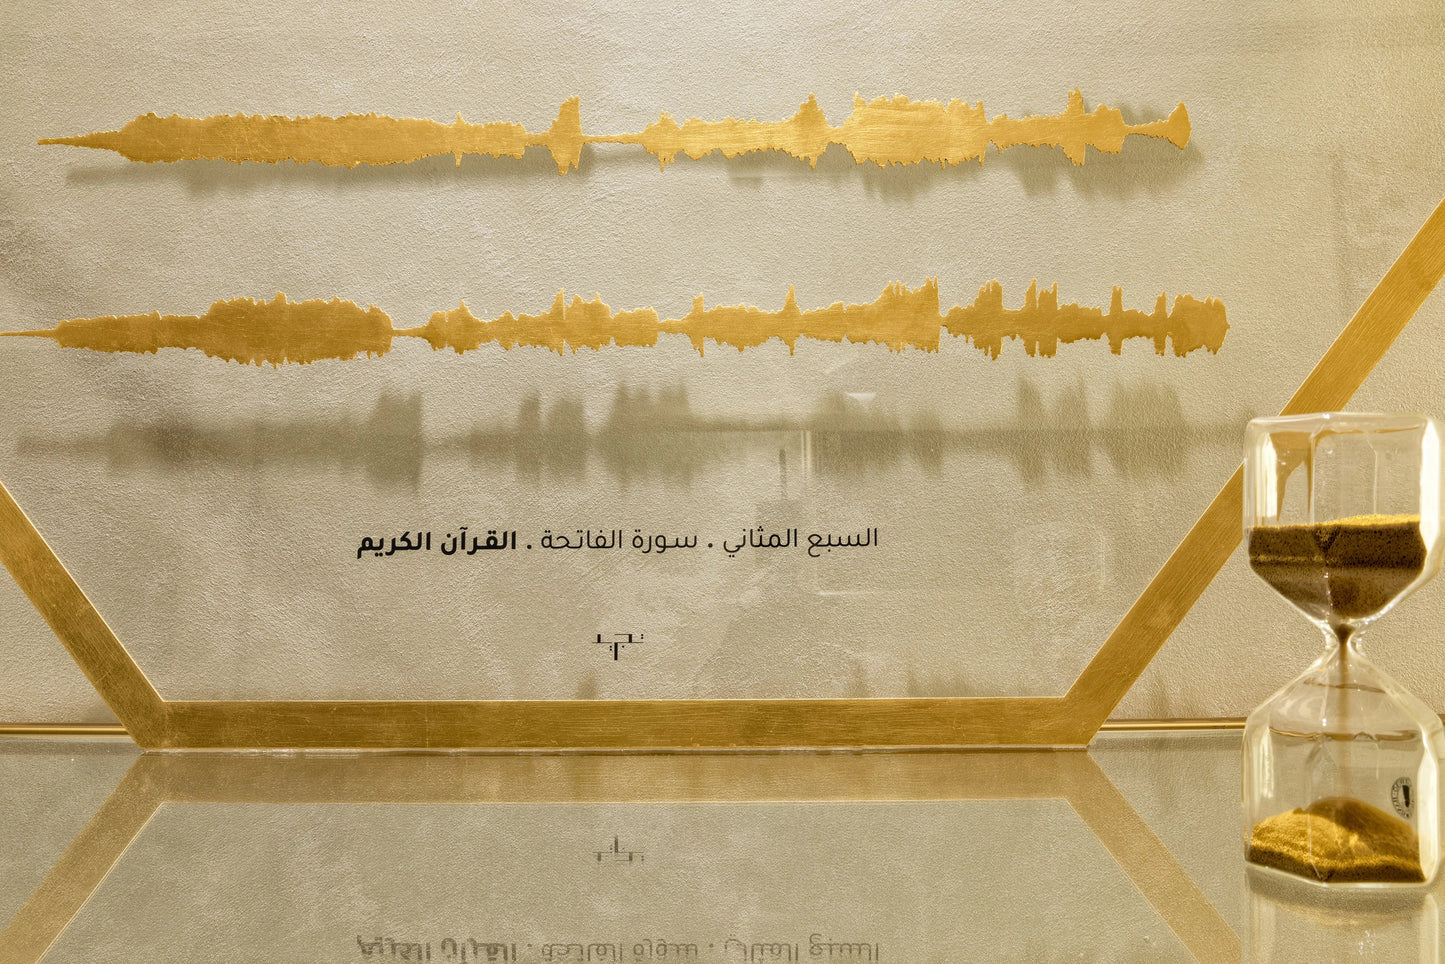 السبع المثاني . سورة الفاتحة . القرآن الكريم
تجريد